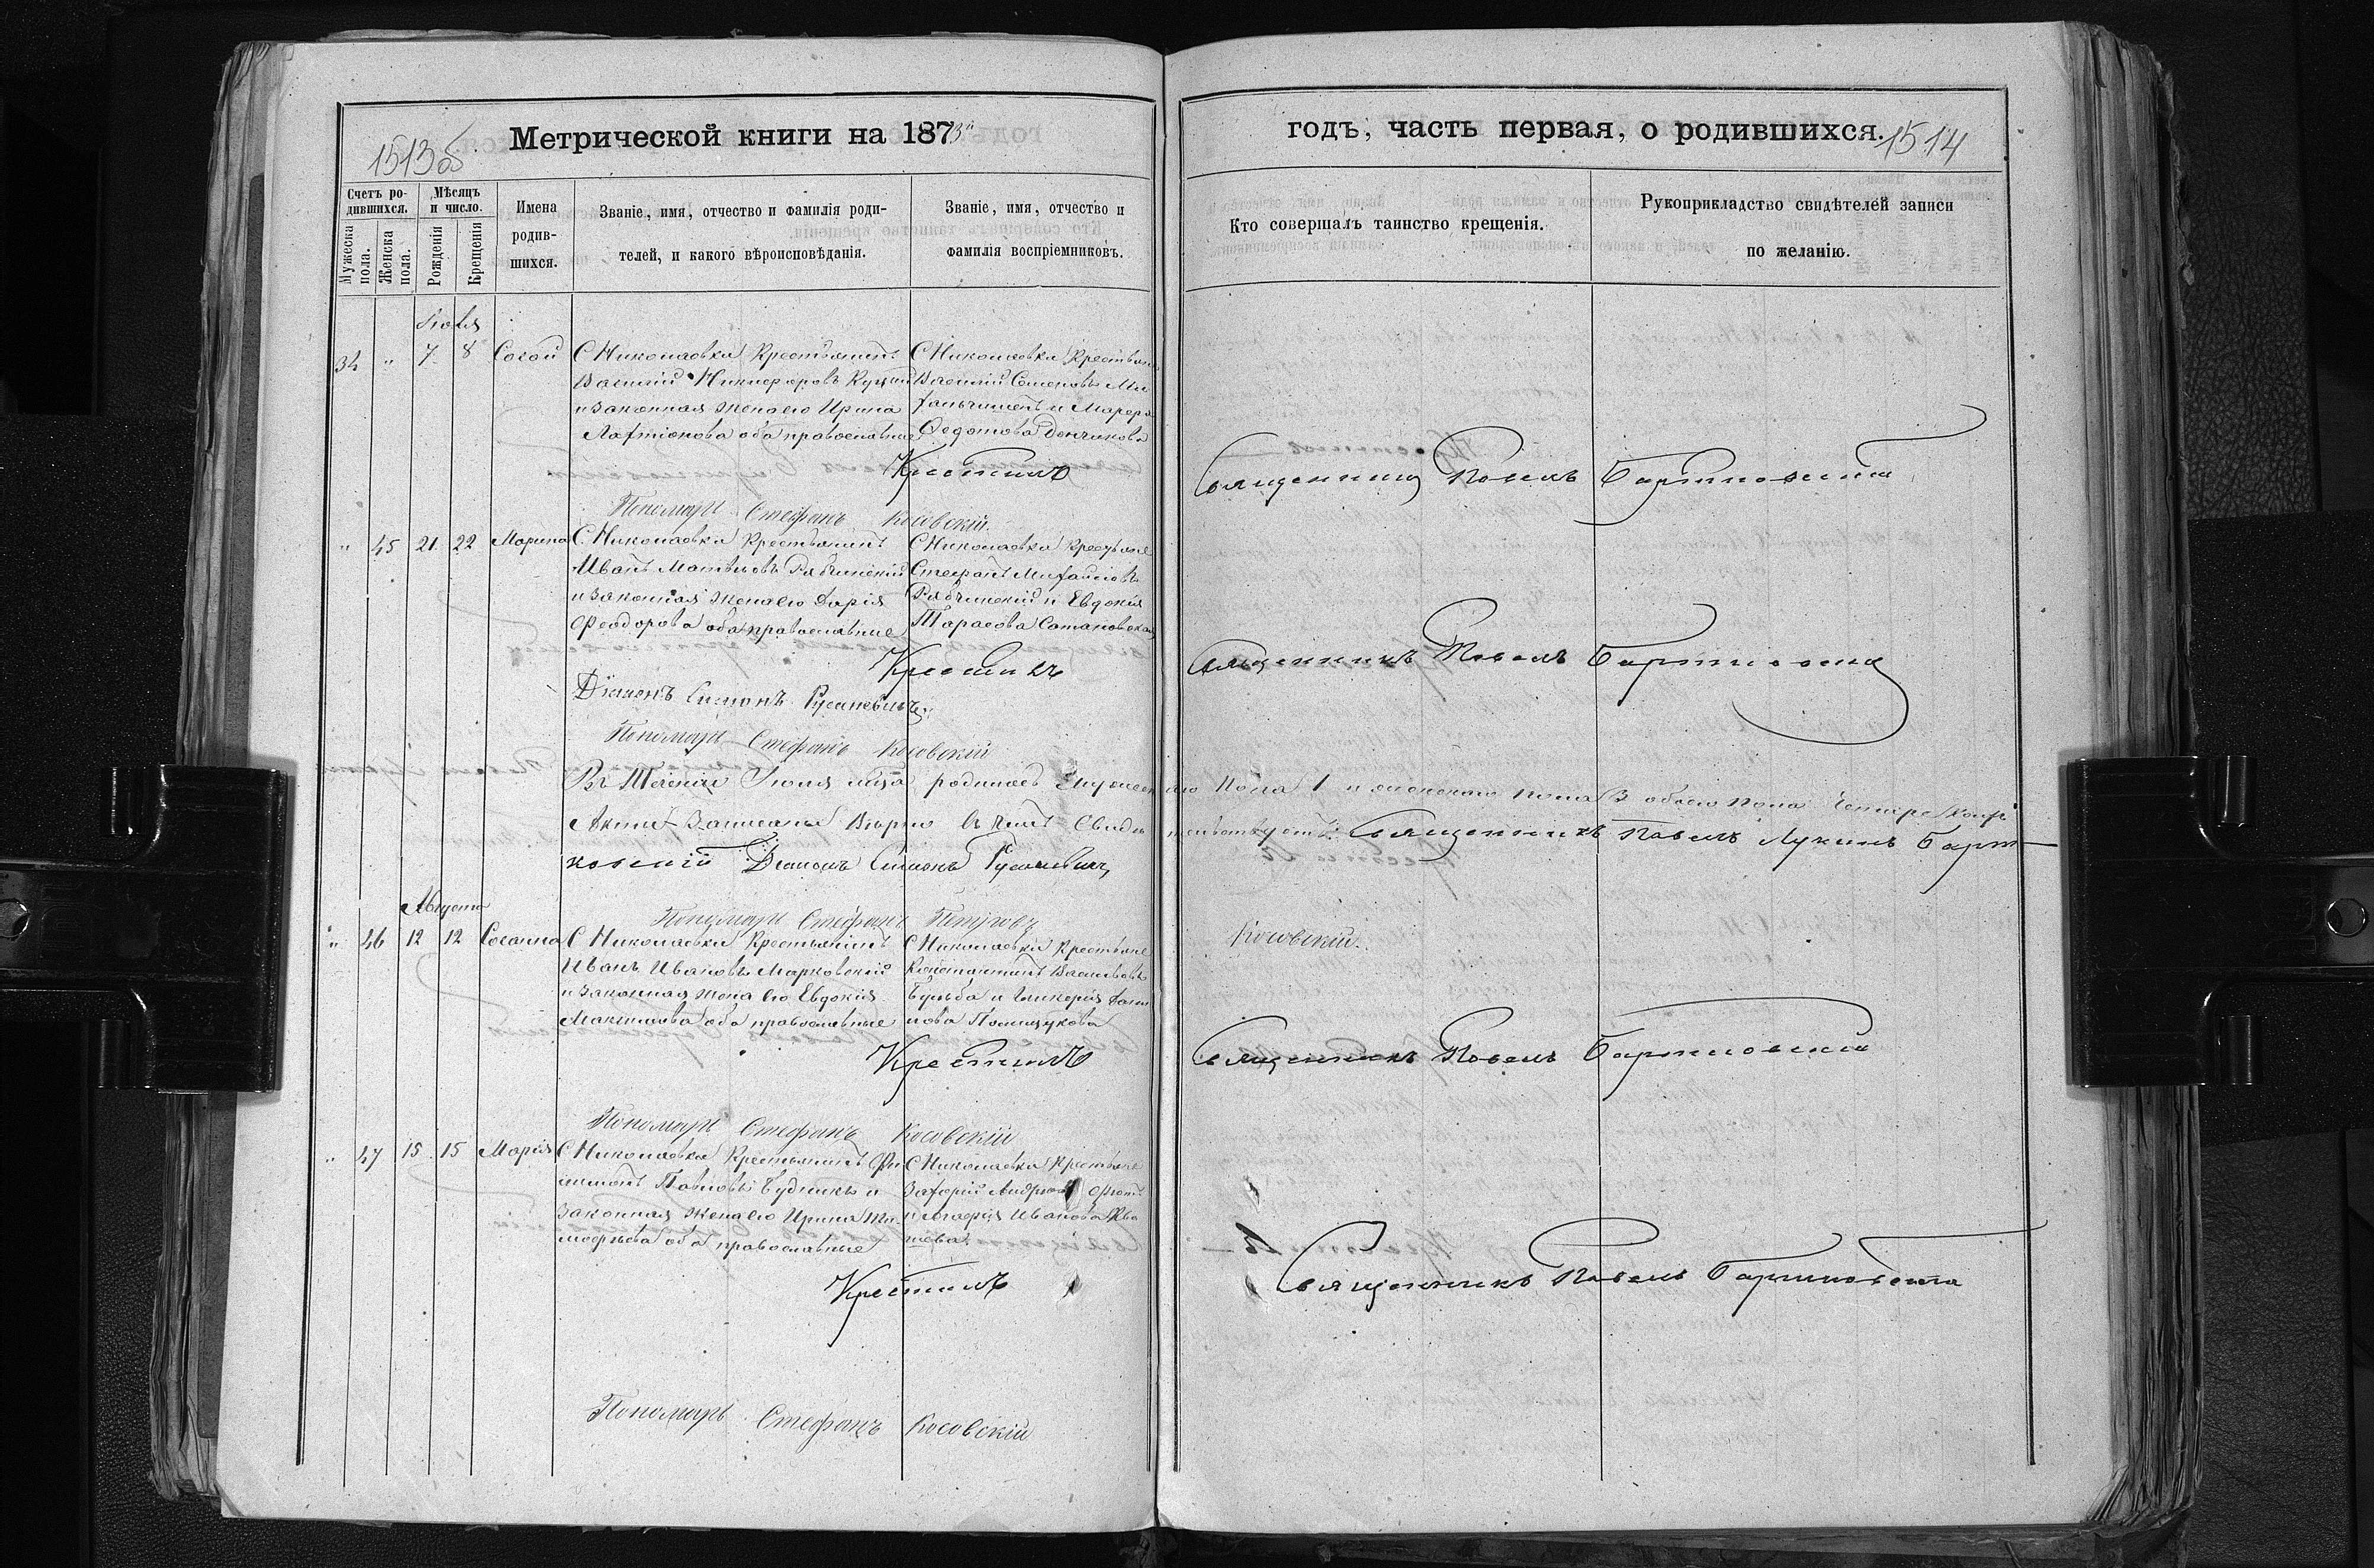 Метрической книги на 1873
годъ, часть первая, о родившихся.
1513об
1514
Счетъ ро-
дившихся.
Мужеска
пола.
Женска
пола.
Мѣсяцъ
и число.
Рожденія
Крещенія
Имена
родив-
шихся.
Званіе, имя, отчество и фамилія роди-
телей, и какого вѣроисповѣданія.
Званіе, имя, отчество и
фамилія воспріемниковъ.
Кто совершалъ таинство крещенія.
Рукоприкладство свидѣтелей записи
по желанію.
Іюля
34 " 7 8
С Николаевки Крестьянинъ
Василій Никифоровъ
и законная жена его Ирина
оба православные
С Николаевки Крестьяне
Василій Семеновъ Ми
и
Федотова
Крестилъ
Священникъ Павелъ Бартновскій
Пономарь Стефанъ Косовскій
" 45 21 22 Марина
С Николаевки Крестьянинъ
Иванъ Матвѣевъ Рабчинскій
и законная жена его Дарія
Феодорова оба православные
С Николаевки Крестьяне
Стефанъ Михайловъ
Рабчинскій и Евдокія
Тарасова Сатановская
Крестилъ
Священникъ Павелъ Бартновскій
Діаконъ Симонъ Русаневичъ
Пономарь Стефанъ Косовскій
Въ Теченіи Іюля м-ца родилось Мужеска го Пола 1 и женскаго пола 3 обоего пола Четыре
Акты Записаны Вѣрно въ чемъ Свидѣтельствуетъ: Священникъ Павелъ Лукинъ Барт-
новскій Діаконъ Симонъ Русаневичъ
Пономарь Стефанъ Петровъ Косовскій
Августа
" 46 12 12 Сосанна
С Николаевки Крестьянинъ
Иванъ Ивановъ Марковскій
и законная жена его Евдокія
Максимова оба православные
С Николаевки Крестьяне
Константинъ Васильевъ
Бульба и Гликерія
Полищукова
Крестилъ
Священникъ Павелъ Бартновскій
Пономарь Стефанъ Косовскій
" 47 15 15 Марія
С Николаевки Крестьянинъ Фи
лимонъ Павловъ Будникъ и
законная жена его Ирина Ти
мофѣева оба православные
С Николаевки Крестьяне
Захарій
и Иванова
Крестилъ
Священникъ Павелъ Бартновскій
Пономарь Стефанъ Косовскій